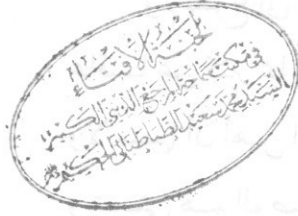 لجنة الافتاء
في مكتب سماحة المرجع الديني الكبير
السيد محمد سعيد الطباطبائي الحكيم